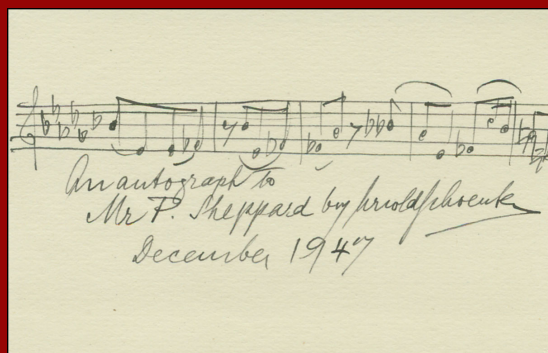 An autograph to
Mr F. Sheppard by Arnold Schoenberg
December 1947